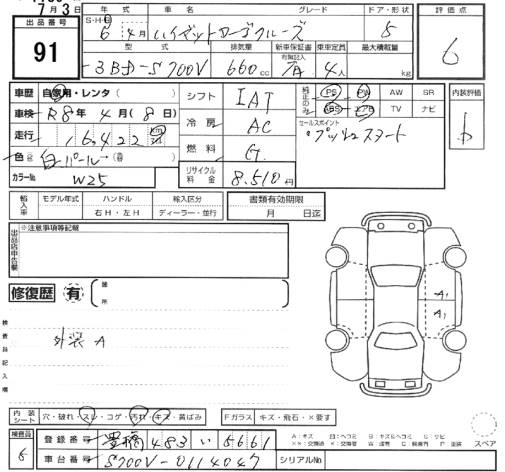 7月3日
出品番号
91
年式 車名 グレード ドア・形状
S・H・R
6年4月 ハイゼットカーゴクルーズ 5
型式 排気量 新車保証書 有無記入 乗車定員 最大積載量
3BD-S700V 660cc 4人 kg
評価点
6
車歴 自家用・レンタ( )
車検 R8年4月(8日)
走行 16,422 km
色 白パール→( )
カラーNo W25
シフト IAT
冷房 AC
燃料 G.
リサイクル料金 8,510円
純正のみ PS PW AW SR
ABS エアB TV ナビ
セールスポイント
プッシュスタート
内装評価
b
輸入車 モデル年式 ハンドル 輸入区分
右H・左H ディーラー・並行
書類有効期限
月 日迄
出品店申告欄
※注意事項等記載
修復歴 有 箇所
検査員記入欄
外装 A
A1
A1
内装シート 穴・破れ・スレ・コゲ・汚れ・キズ・黄ばみ
Fガラス キズ・飛石・×要す
検査員
6
登録番号 豊橋 483 い 5661
車台番号 S700V-0114047
シリアルNo
A:キズ U:ヘコミ B:キズ&ヘコミ S:サビ
スペア